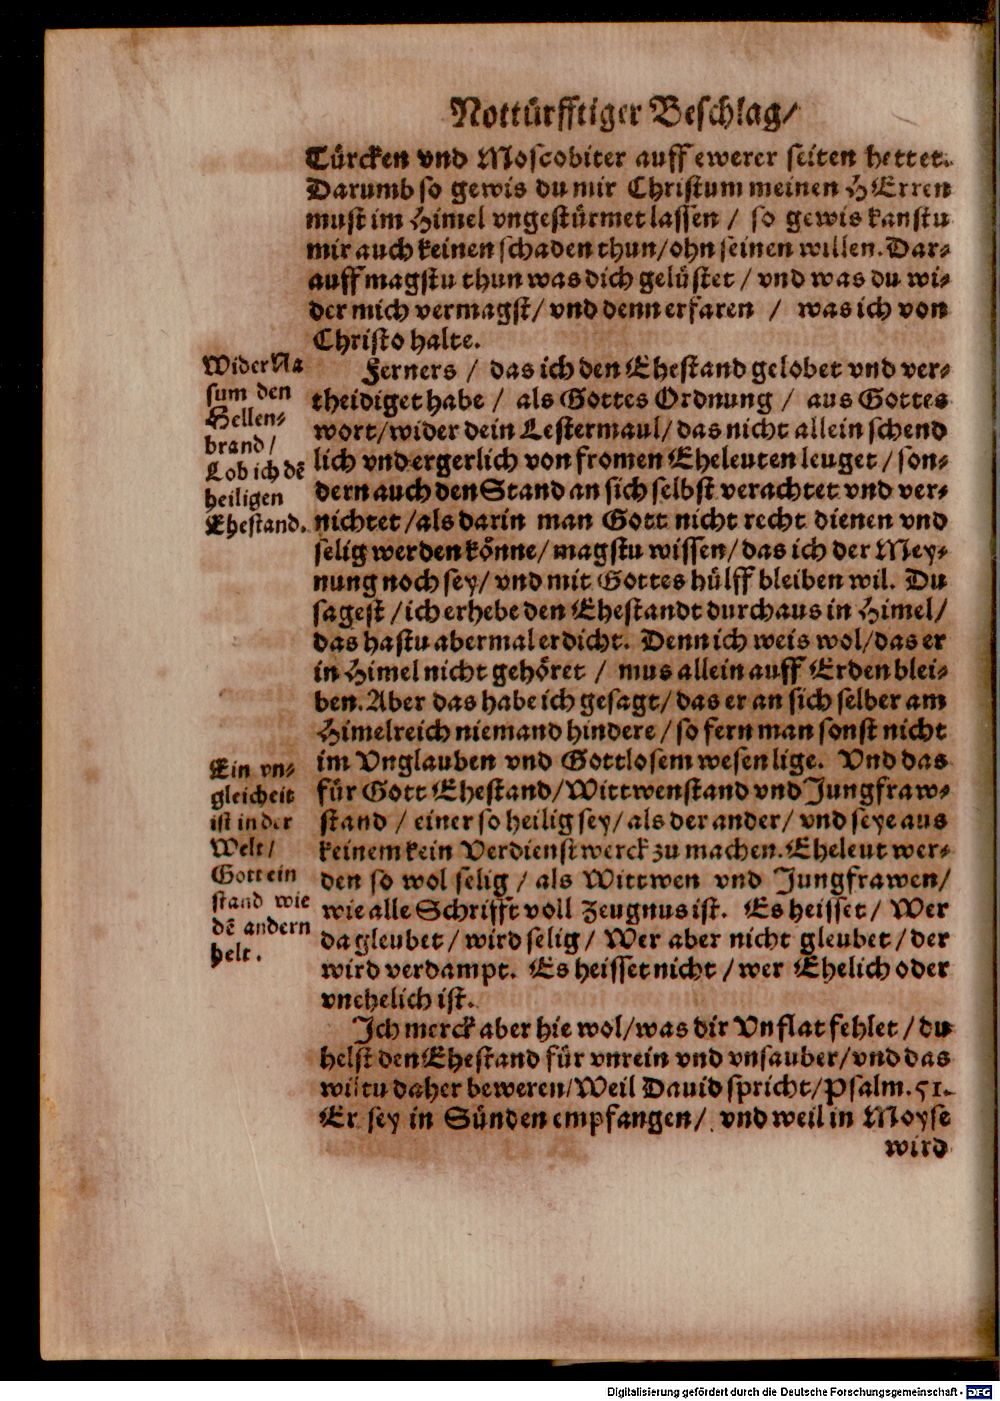 Nottürfftiger Beschlag/
Türcken vnd Moscobiter auff ewerer seiten hettet.
Darumb so gewis du mir Christum meinen HErren
must im Himel vngestürmet lassen / so gewis kanstu
mir auch keinen schaden thun/ohn seinen willen. Dar-
auff magstu thun was dich gelüstet / vnd was du wi-
der mich vermagst/ vnd denn erfaren / was ich von
Christo halte.
Wider Na
sum den
Hellen-
brand/
Lob ich dē
heiligen
Ehestand.
Ferners / das ich den Ehestand gelobet vnd ver-
theidiget habe / als Gottes Ordnung / aus Gottes
wort/wider dein Lestermaul/das nicht allein schend
lich vnd ergerlich von fromen Eheleuten leuget / son-
dern auch den Stand an sich selbst verachtet vnd ver-
nichtet /als darin man Gott nicht recht dienen vnd
selig werden könne/magstu wissen/das ich der Mey-
nung noch sey/ vnd mit Gottes hülff bleiben wil. Du
sagest /ich erhebe den Ehestandt durchaus in Himel/
das hastu abermal erdicht. Denn ich weis wol/das er
in Himel nicht gehöret / mus allein auff Erden blei-
ben. Aber das habe ich gesagt/das er an sich selber am
Himelreich niemand hindere /so fern man sonst nicht
im Vnglauben vnd Gottlosem wesen lige. Vnd das
für Gott Ehestand/Wittwenstand vnd Jungfraw-
stand / einer so heilig sey/als der ander/ vnd seye aus
keinem kein Verdienstwerck zu machen. Eheleut wer-
den so wol selig / als Wittwen vnd Jungfrawen/
wie alle Schrifft voll Zeugnus ist. Es heisset / Wer
da gleubet / wird selig / Wer aber nicht gleubet / der
wird verdampt. Es heisset nicht / wer Ehelich oder
vnehelich ist.
Ein vn-
gleicheit
ist in der
Welt /
Gott ein
stand wie
dē andern
helt.
Ich merck aber hie wol/was dir Vnflat fehlet / du
helst den Ehestand für vnrein vnd vnsauber/vnd das
wiltu daher beweren/Weil Dauid spricht/Psalm. 51.
Er sey in Sünden empfangen/ vnd weil in Moyse
wird
Digitalisierung gefördert durch die Deutsche Forschungsgemeinschaft - DFG